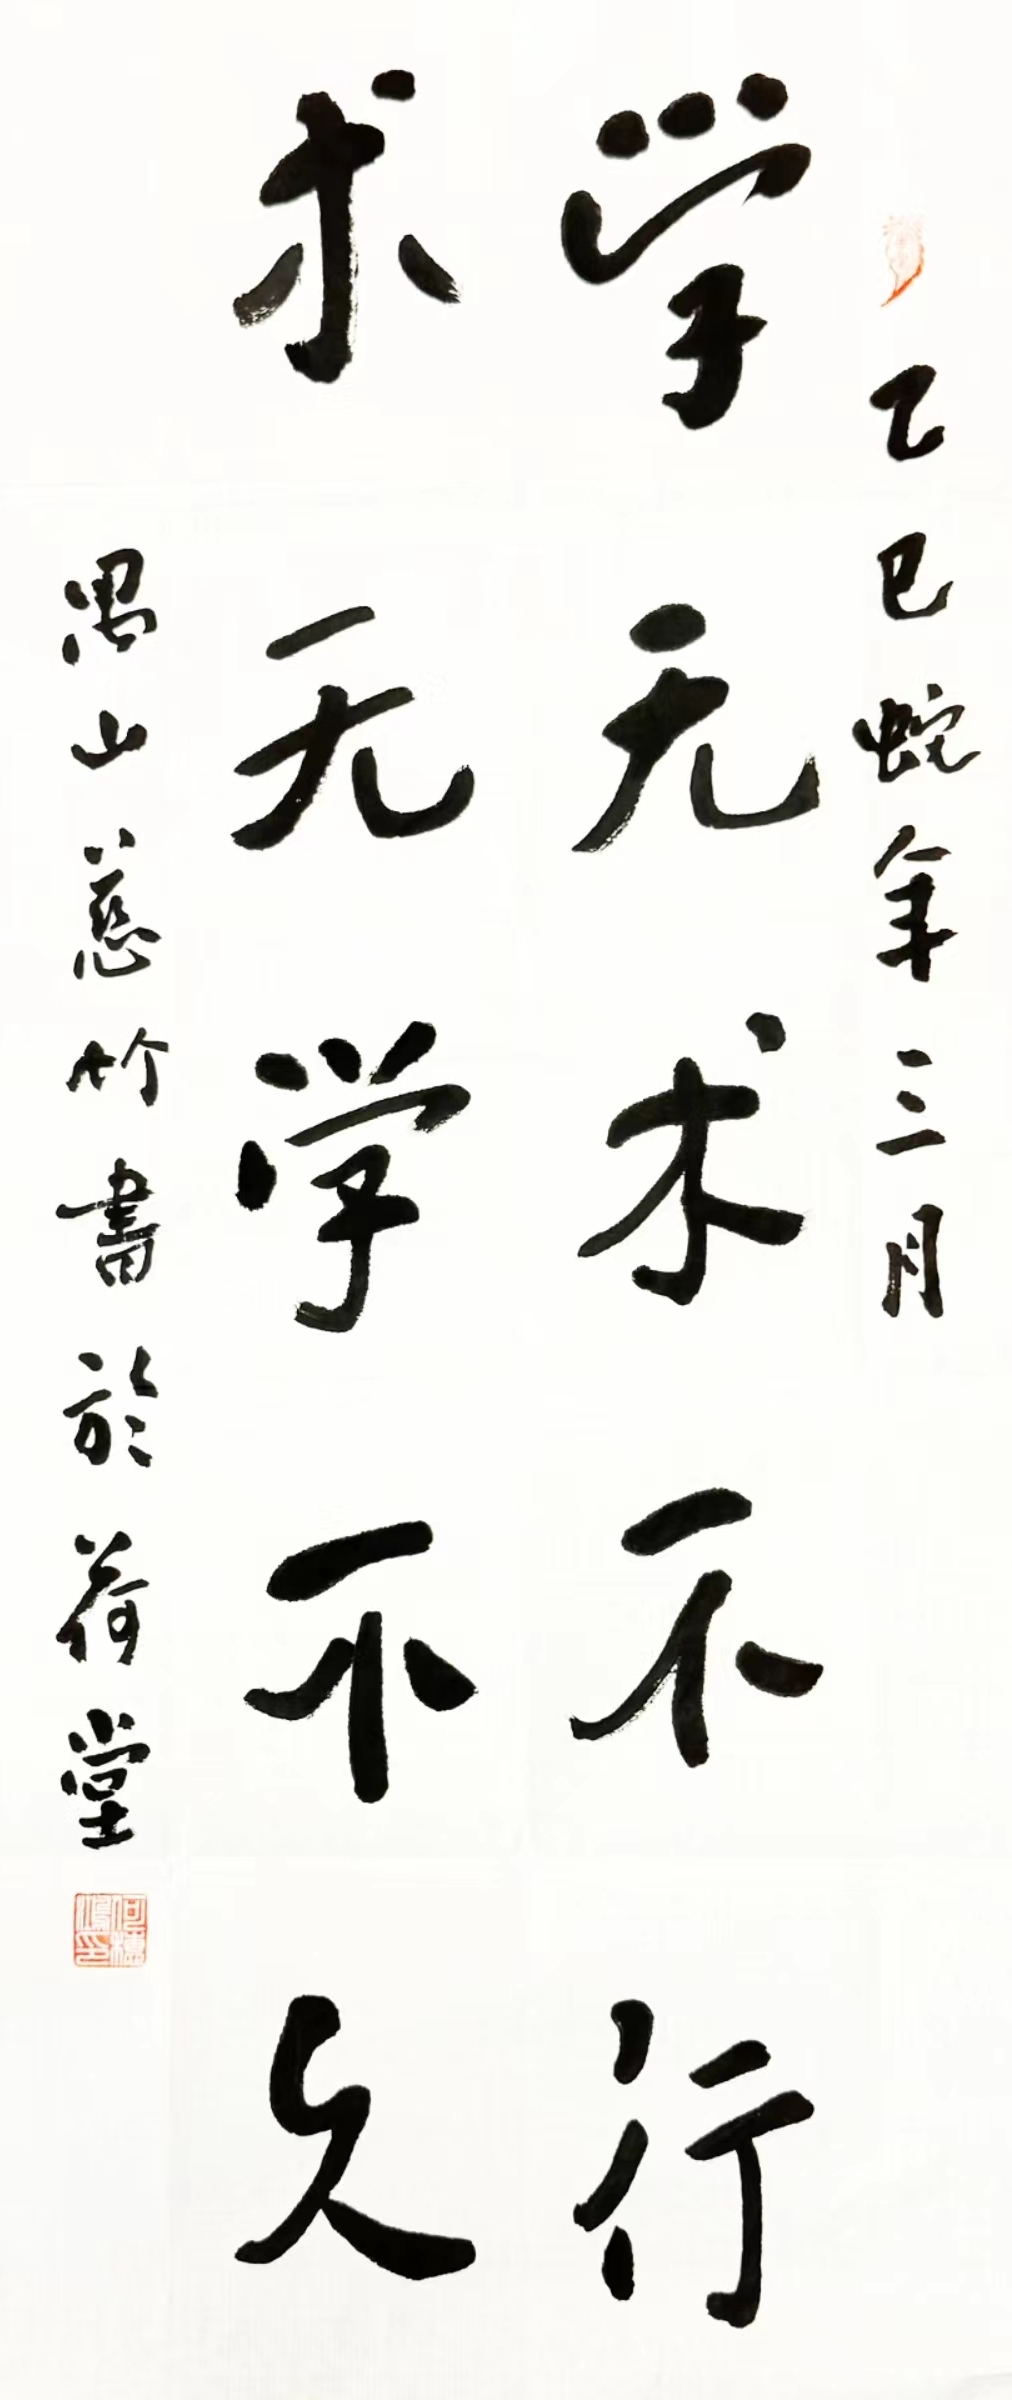 乙巳蛇年三月
学无术不行
术无学不久
愚山慈竹书於荷堂